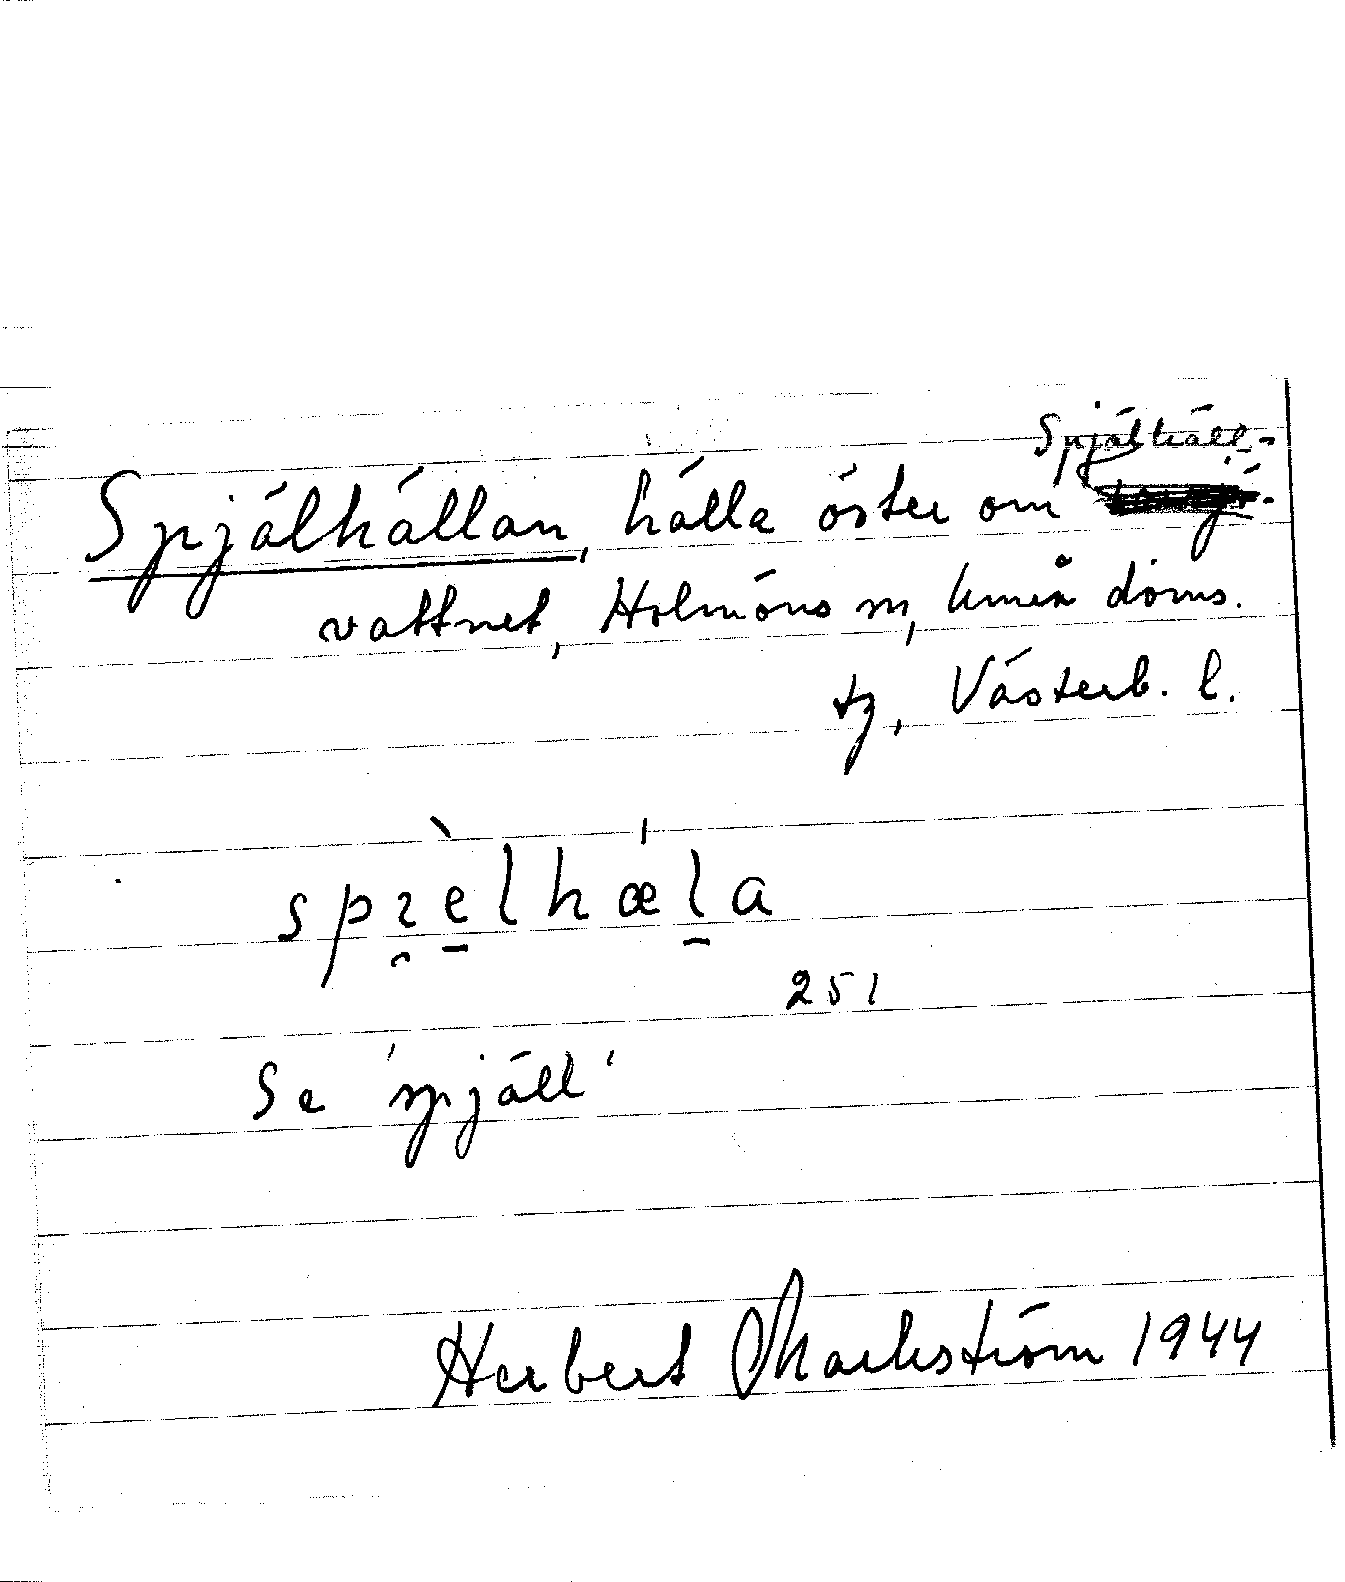 Spjälhäll-
Spjälhällan, hälla öster om
vattnet, Holmöns sn, Umeå doms.
tg, Västerb. l.
spɿ̯èlhæ̍la
251
Se 'spjäll'
Herbert Markström 1944